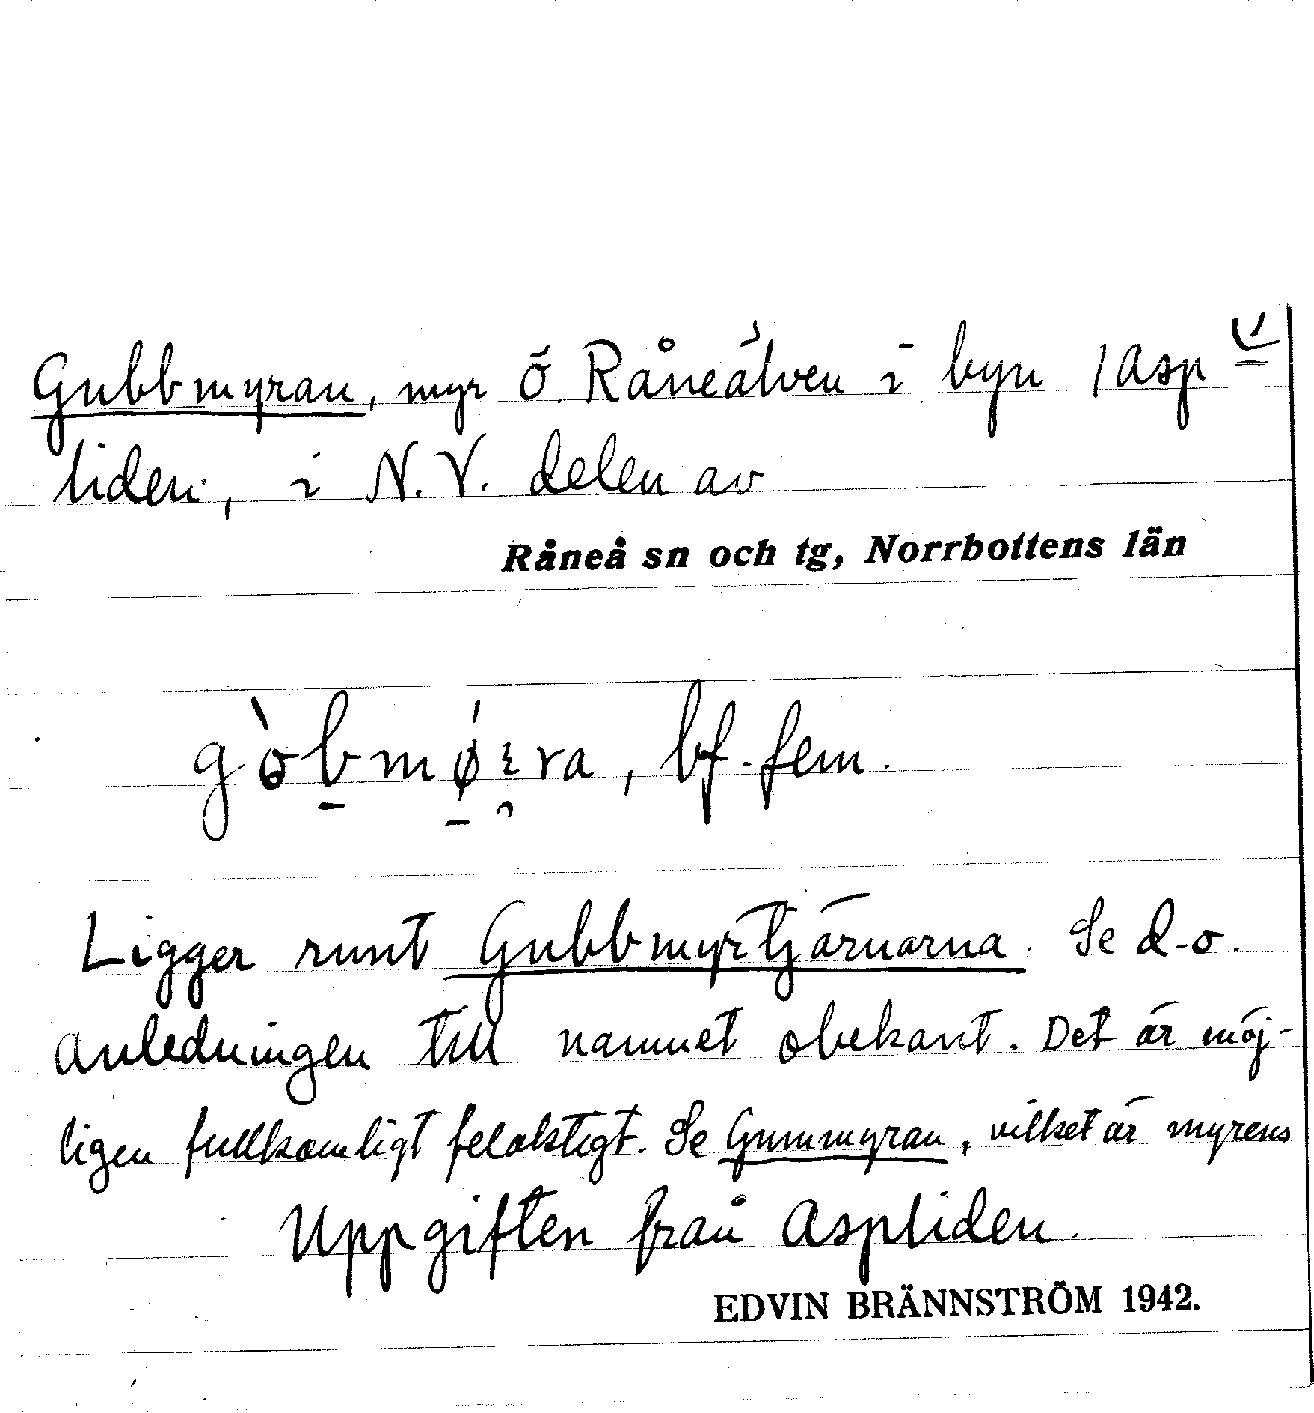 Gubbmyran, myr Ö. Råneälven i byn /Asp
liden, i N.V. delen av
Råneå sn och tg, Norrbottens län
bf. fem.
Ligger runt Gubbmyrtjärnarna. Se d-o.
Anledningen till namnet obekant. Det är möj-
ligen fullkomligt felaktigt. Se Gummyran, vilket är myrens
Uppgiften från Aspliden.
EDVIN BRÄNNSTRÖM 1942.